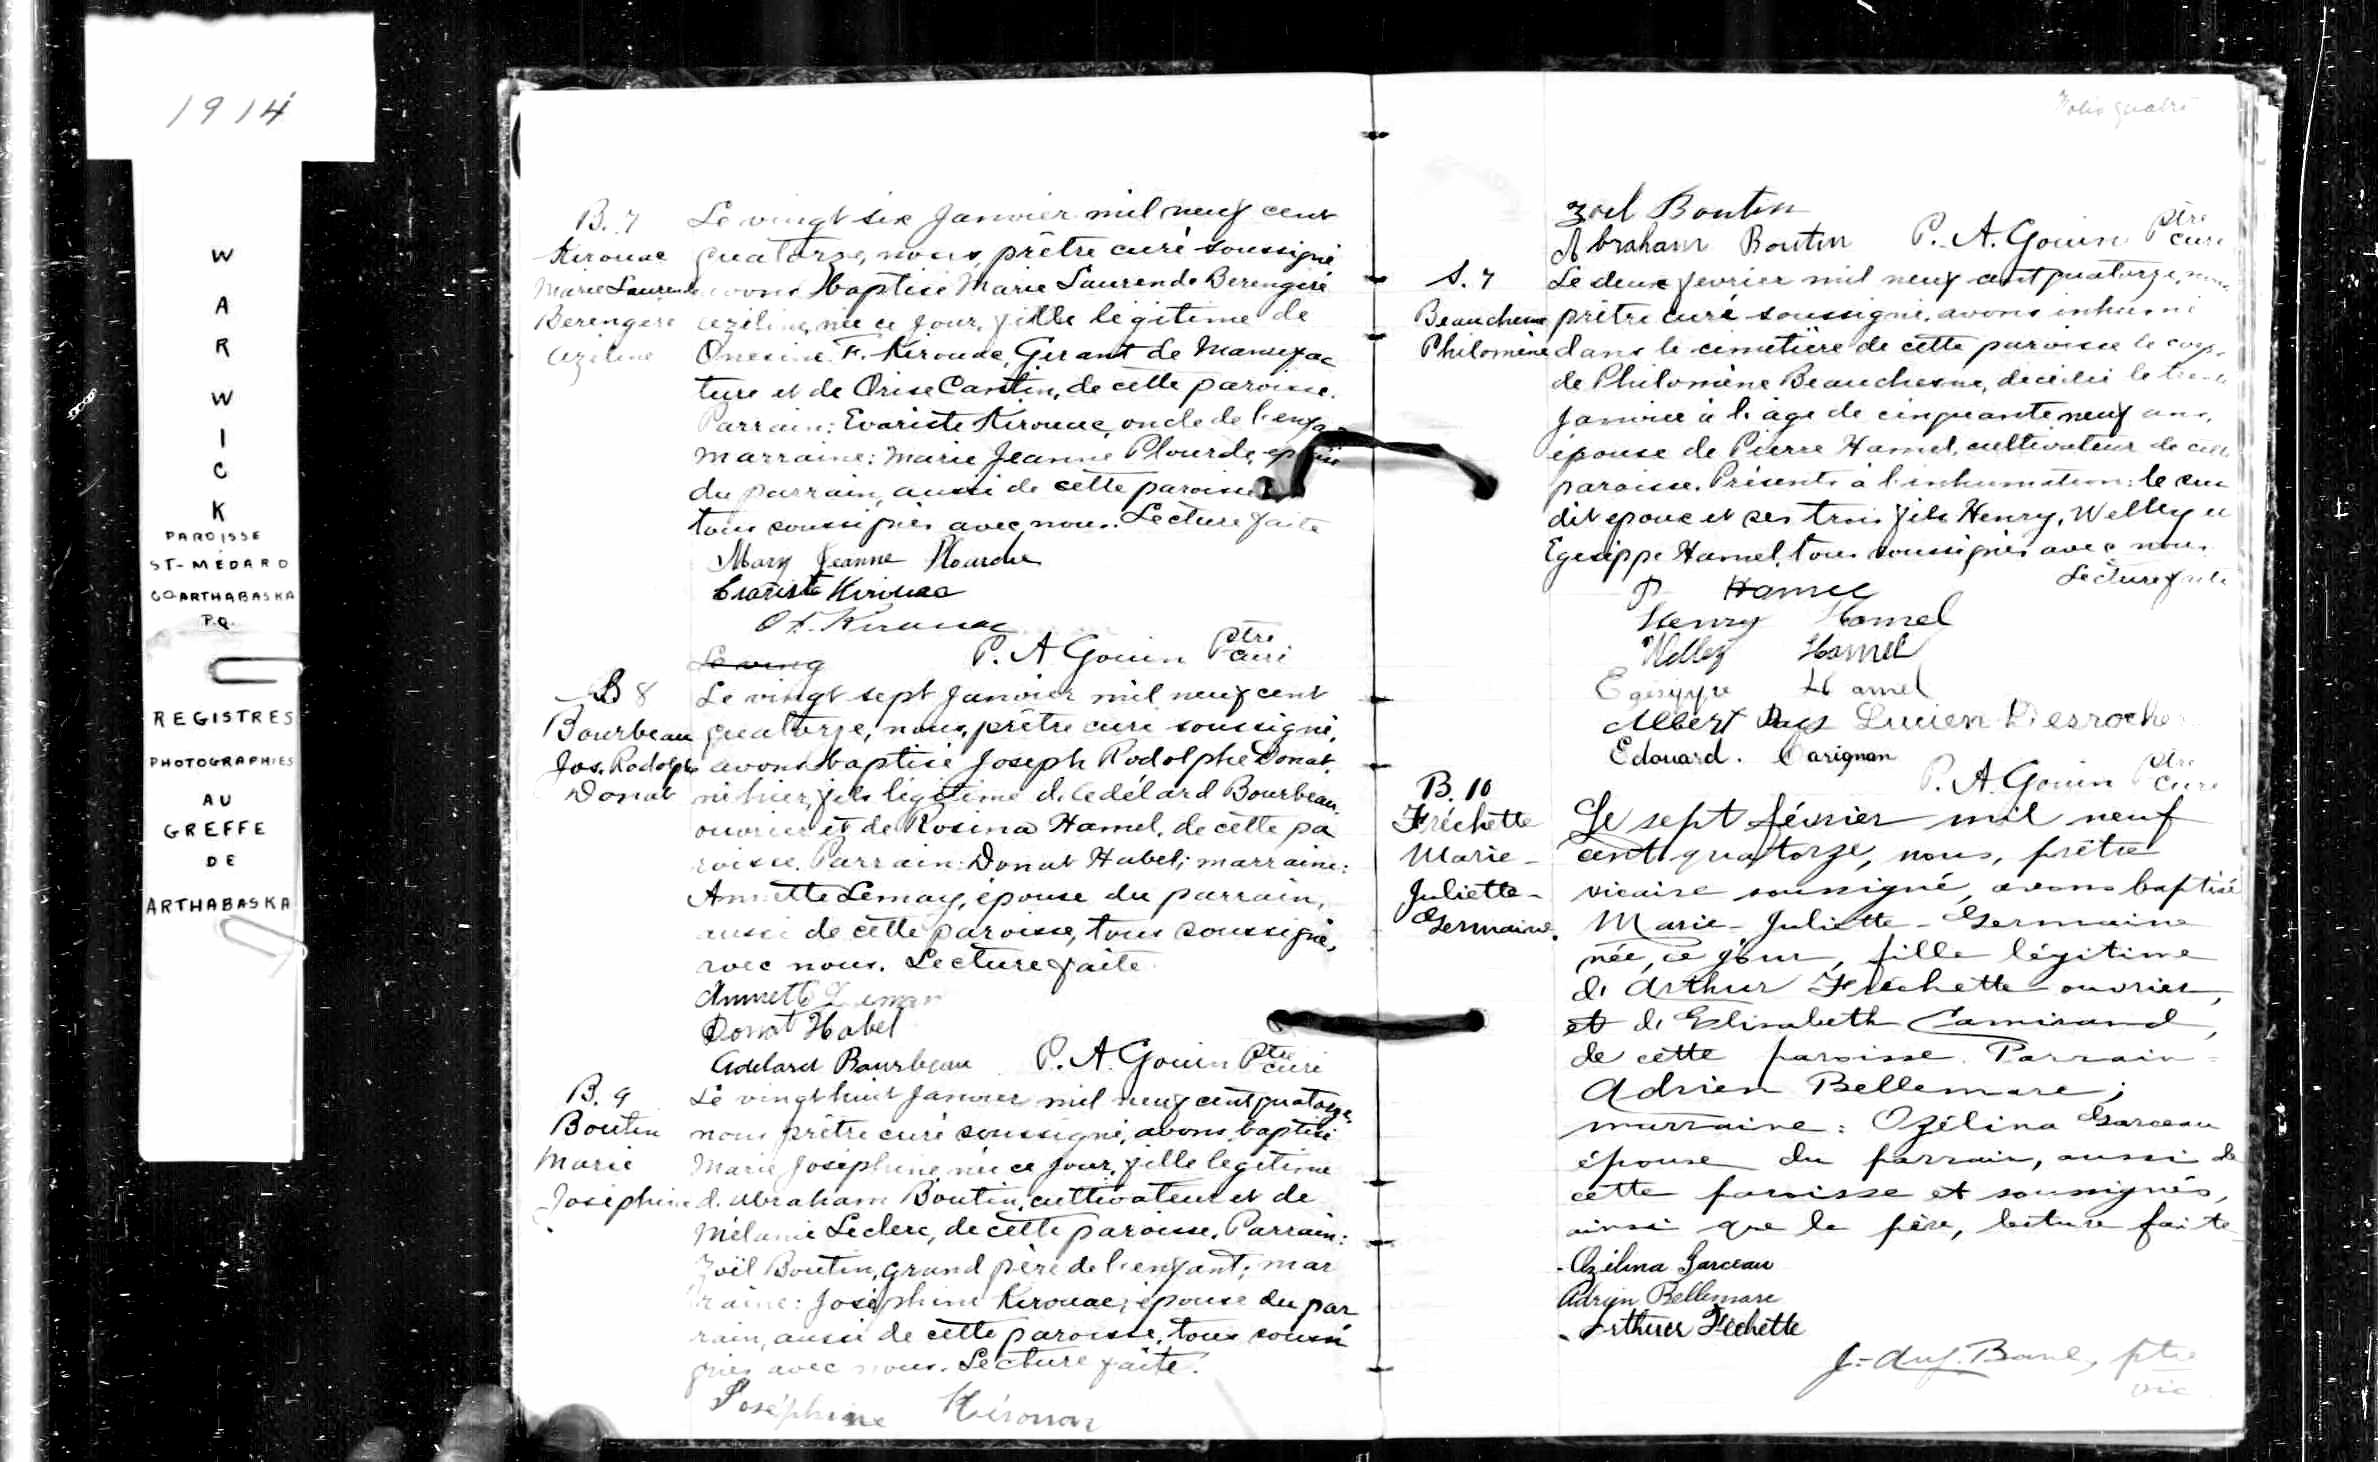 1914
W
A
R
W
I
C
K
PAROISSE
ST-MÉDARD
CO ARTHABASKA
P.Q.
REGISTRES
PHOTOGRAPHIES
AU
GREFFE
DE
ARTHABASKA
B. 7
Kirouac
Marie Laurende
Berengère
Azéline
Le vingt six Janvier mil neuf cent
quatorze, nous, prêtre curé soussigné
avons baptisé Marie Laurende Berengère
Azéline, née ce jour, fille légitime de
Onésime F. Kirouac, Gérant de Manufac
ture et de Orise Cantin, de cette paroisse.
Parrain: Evariste Kirouac, oncle de l'enfa
marraine: Marie Jeanne Plourde, épouse
du parrain, aussi de cette paroisse
tous soussignés avec nous. Lecture faite
Mary Jeanne Plourde
Evariste Kirouac
O F. Kirouac
Le ving
P. A Gouin Ptre curé
B 8
Bourbeau
Jos. Rodolphe
Donat
Le vingt sept Janvier mil neuf cent
quatorze, nous, prêtre curé soussigné,
avons baptisé Joseph Rodolphe Donat,
né hier, fils légitime d'Adélard Bourbeau
ouvrier et de Rosina Hamel, de cette pa
roisse. Parrain: Donat Habel; marraine:
Annette Lemay, épouse du parrain,
aussi de cette paroisse, tous soussignés
avec nous. Lecture faite
Annette Lemay
Donat Habel
Adelard Bourbeau P. A. Gouin Ptre curé
B. 9
Boutin
Marie
Joséphine
Le vingt huit Janvier mil neuf cent quatorze,
nous prêtre curé soussigné, avons baptisé
Marie Joséphine, née ce jour, fille légitime
d'Abraham Boutin, cultivateur et de
Mélanie Leclerc, de cette paroisse. Parrain:
Zoël Boutin, grand père de l'enfant; mar
raine: Joséphine Kirouac, épouse du par
rain, aussi de cette paroisse, tous soussi
gnés avec nous. Lecture faite.
Joséphine Kérouac
Folio quatre
Zoel Boutin
Abraham Boutin P. A. Gouin Ptre curé
S. 7
Beauchesne
Philomène
Le deux février mil neuf cent quatorze, nous
prêtre curé soussigné, avons inhumé
dans le cimetière de cette paroisse le corps
de Philomène Beauchesne, décédée le trente
Janvier à l'âge de cinquante neuf ans,
épouse de Pierre Hamel, cultivateur de cette
paroisse. Présents à l'inhumation: le sus
dit époux et ses trois fils Henry, Welley et
Egésippe Hamel, tous soussignés avec nous.
Lecture faite
P Hamel
Henry Hamel
Welley Hamel
Egésippe Hamel
Albert Lucien Desroche
Edouard. Carignan
P. A. Gouin Ptre curé
B. 10
Fréchette
Marie-
Juliette-
Germaine.
Le sept février mil neuf
cent quatorze, nous, prêtre
vicaire soussigné, avons baptisé
Marie-Juliette-Germaine
née, ce jour, fille légitime
d'Arthur Fréchette ouvrier,
et d'Elisabeth Camirand,
de cette paroisse. Parrain =
Adrien Bellemare;
marraine: Ozélina Garceau
épouse du parrain, aussi de
cette paroisse et soussignés,
ainsi que le père, lecture faite
Ozélina Garceau
Adrien Bellemare
Arthur Fréchette
ptre vic